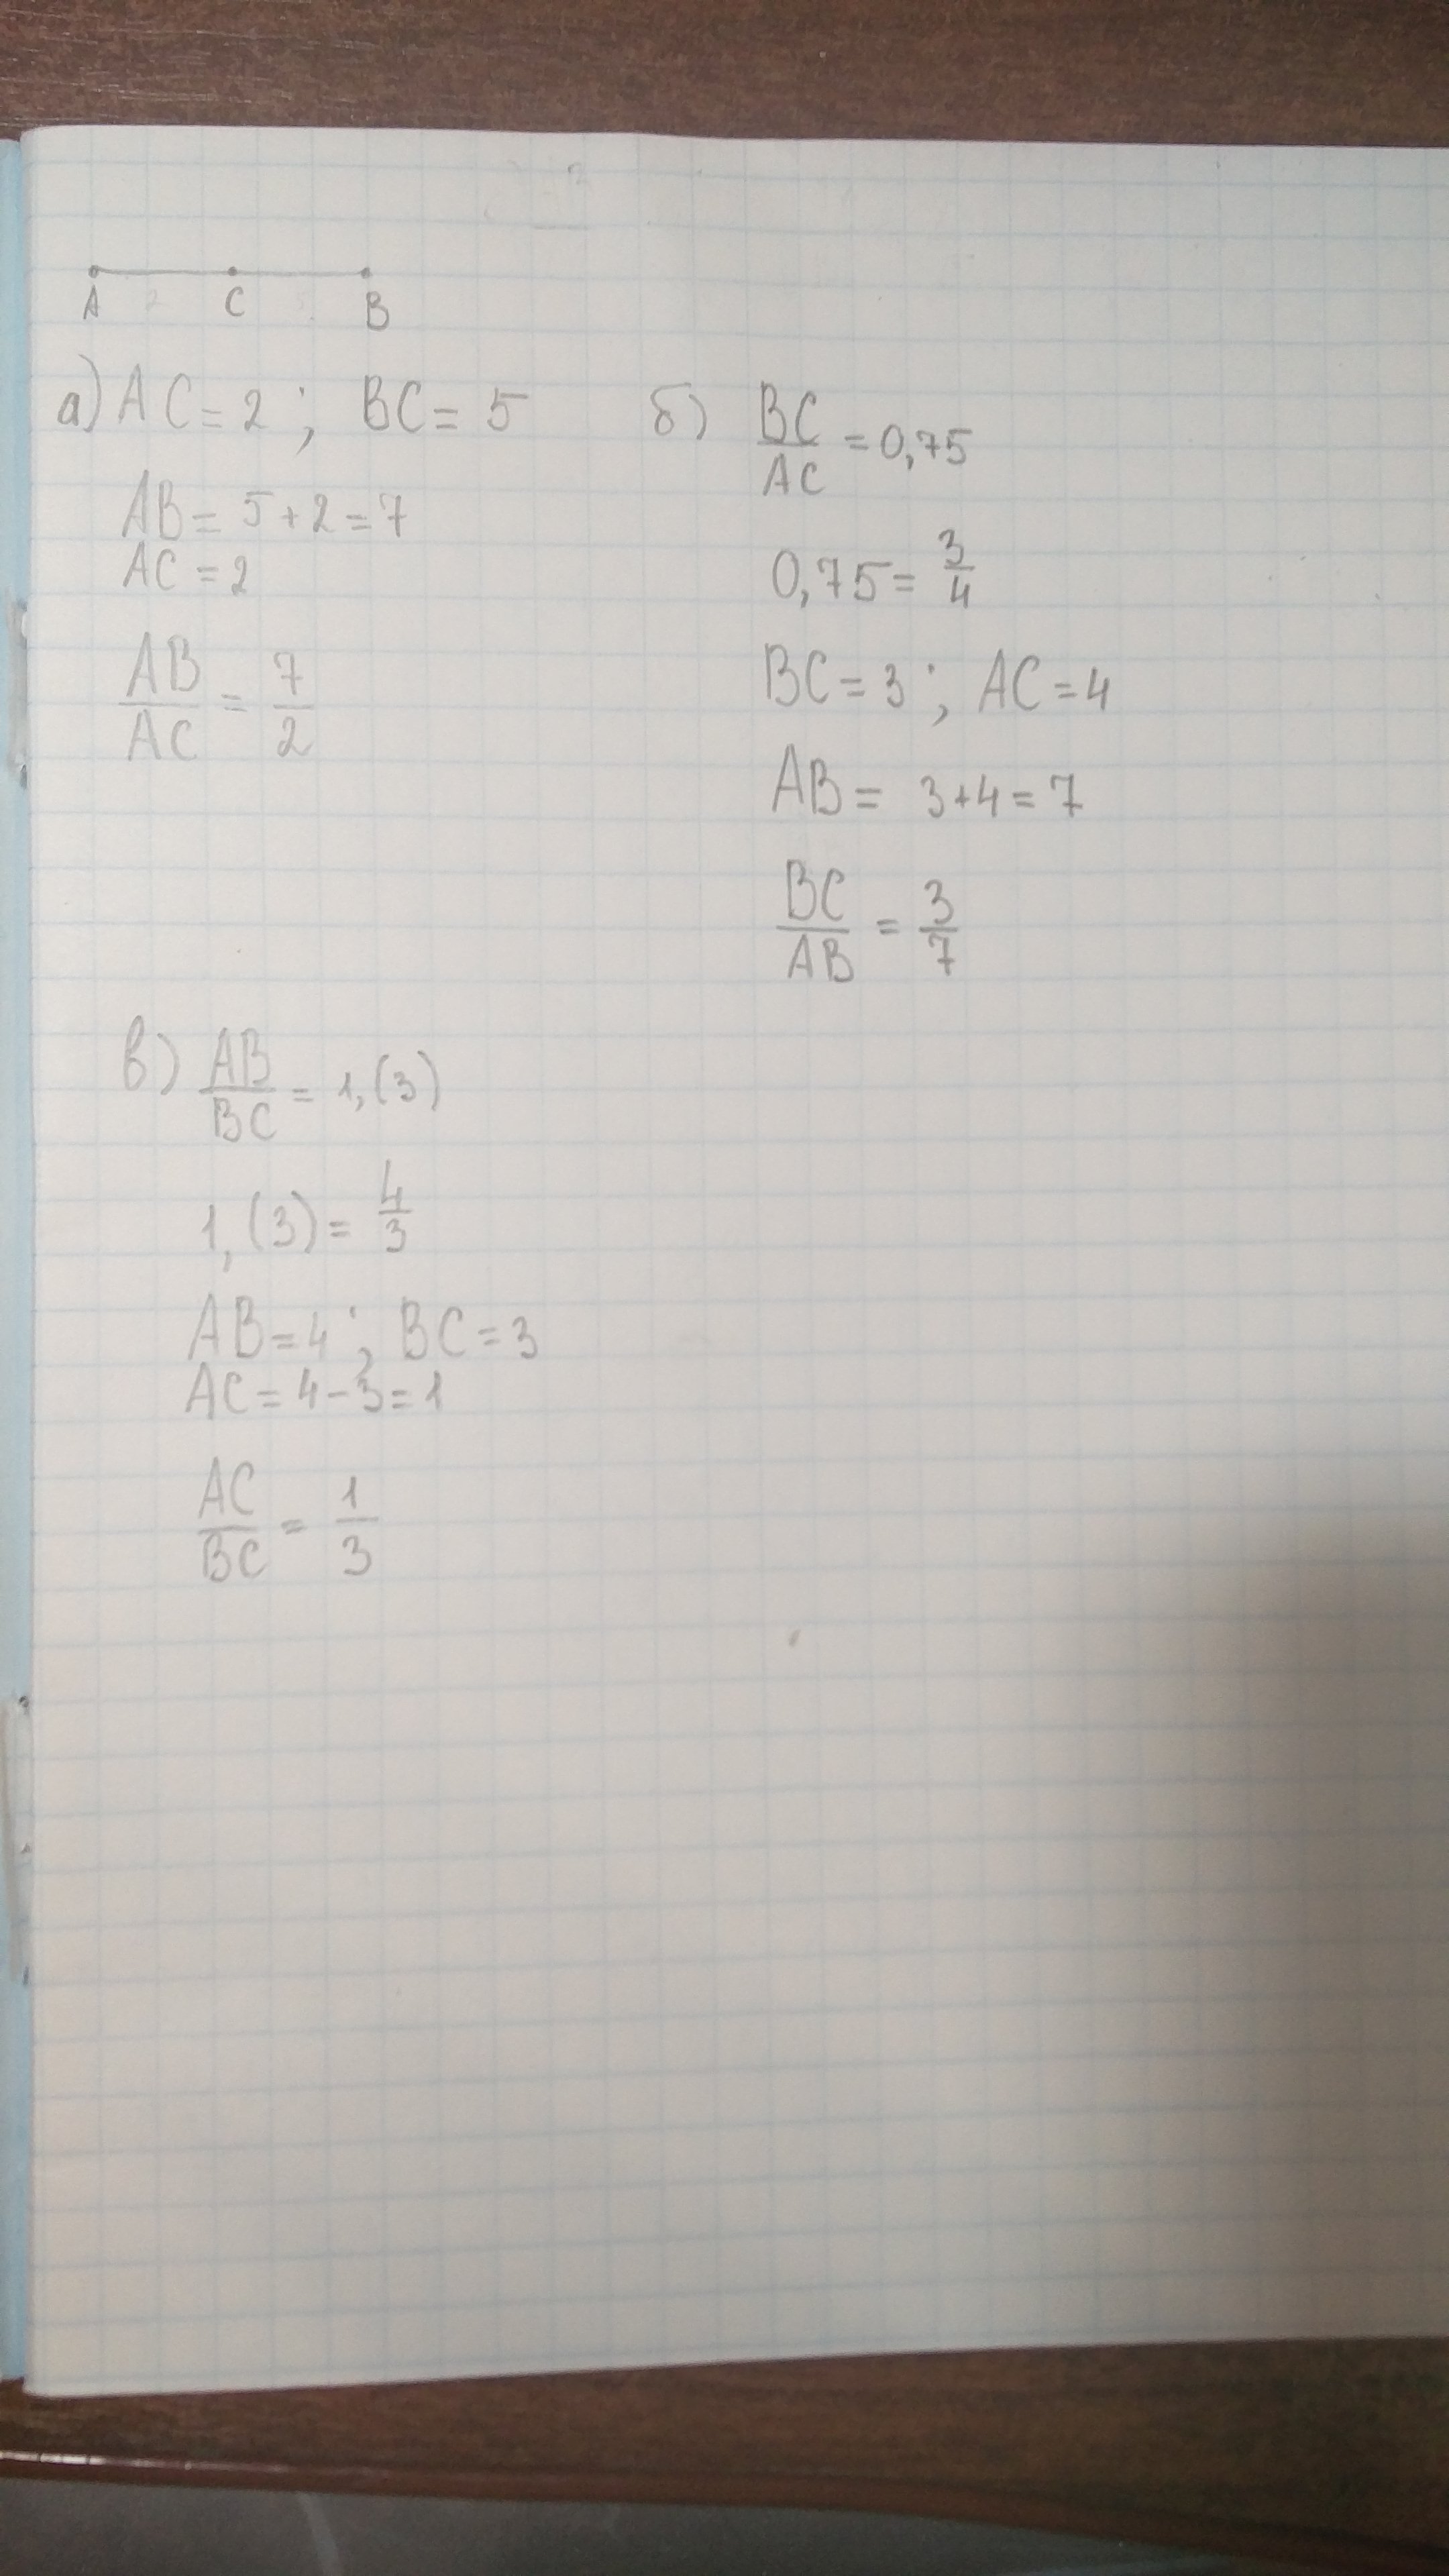 A C B
а) AC = 2 ; BC = 5
AB = 5 + 2 = 7
AC = 2
AB/AC = 7/2
б) BC/AC = 0,75
0,75 = 3/4
BC = 3 ; AC = 4
AB = 3 + 4 = 7
BC/AB = 3/7
в) AB/BC = 1,(3)
1,(3) = 4/3
AB = 4 ; BC = 3
AC = 4 - 3 = 1
AC/BC = 1/3